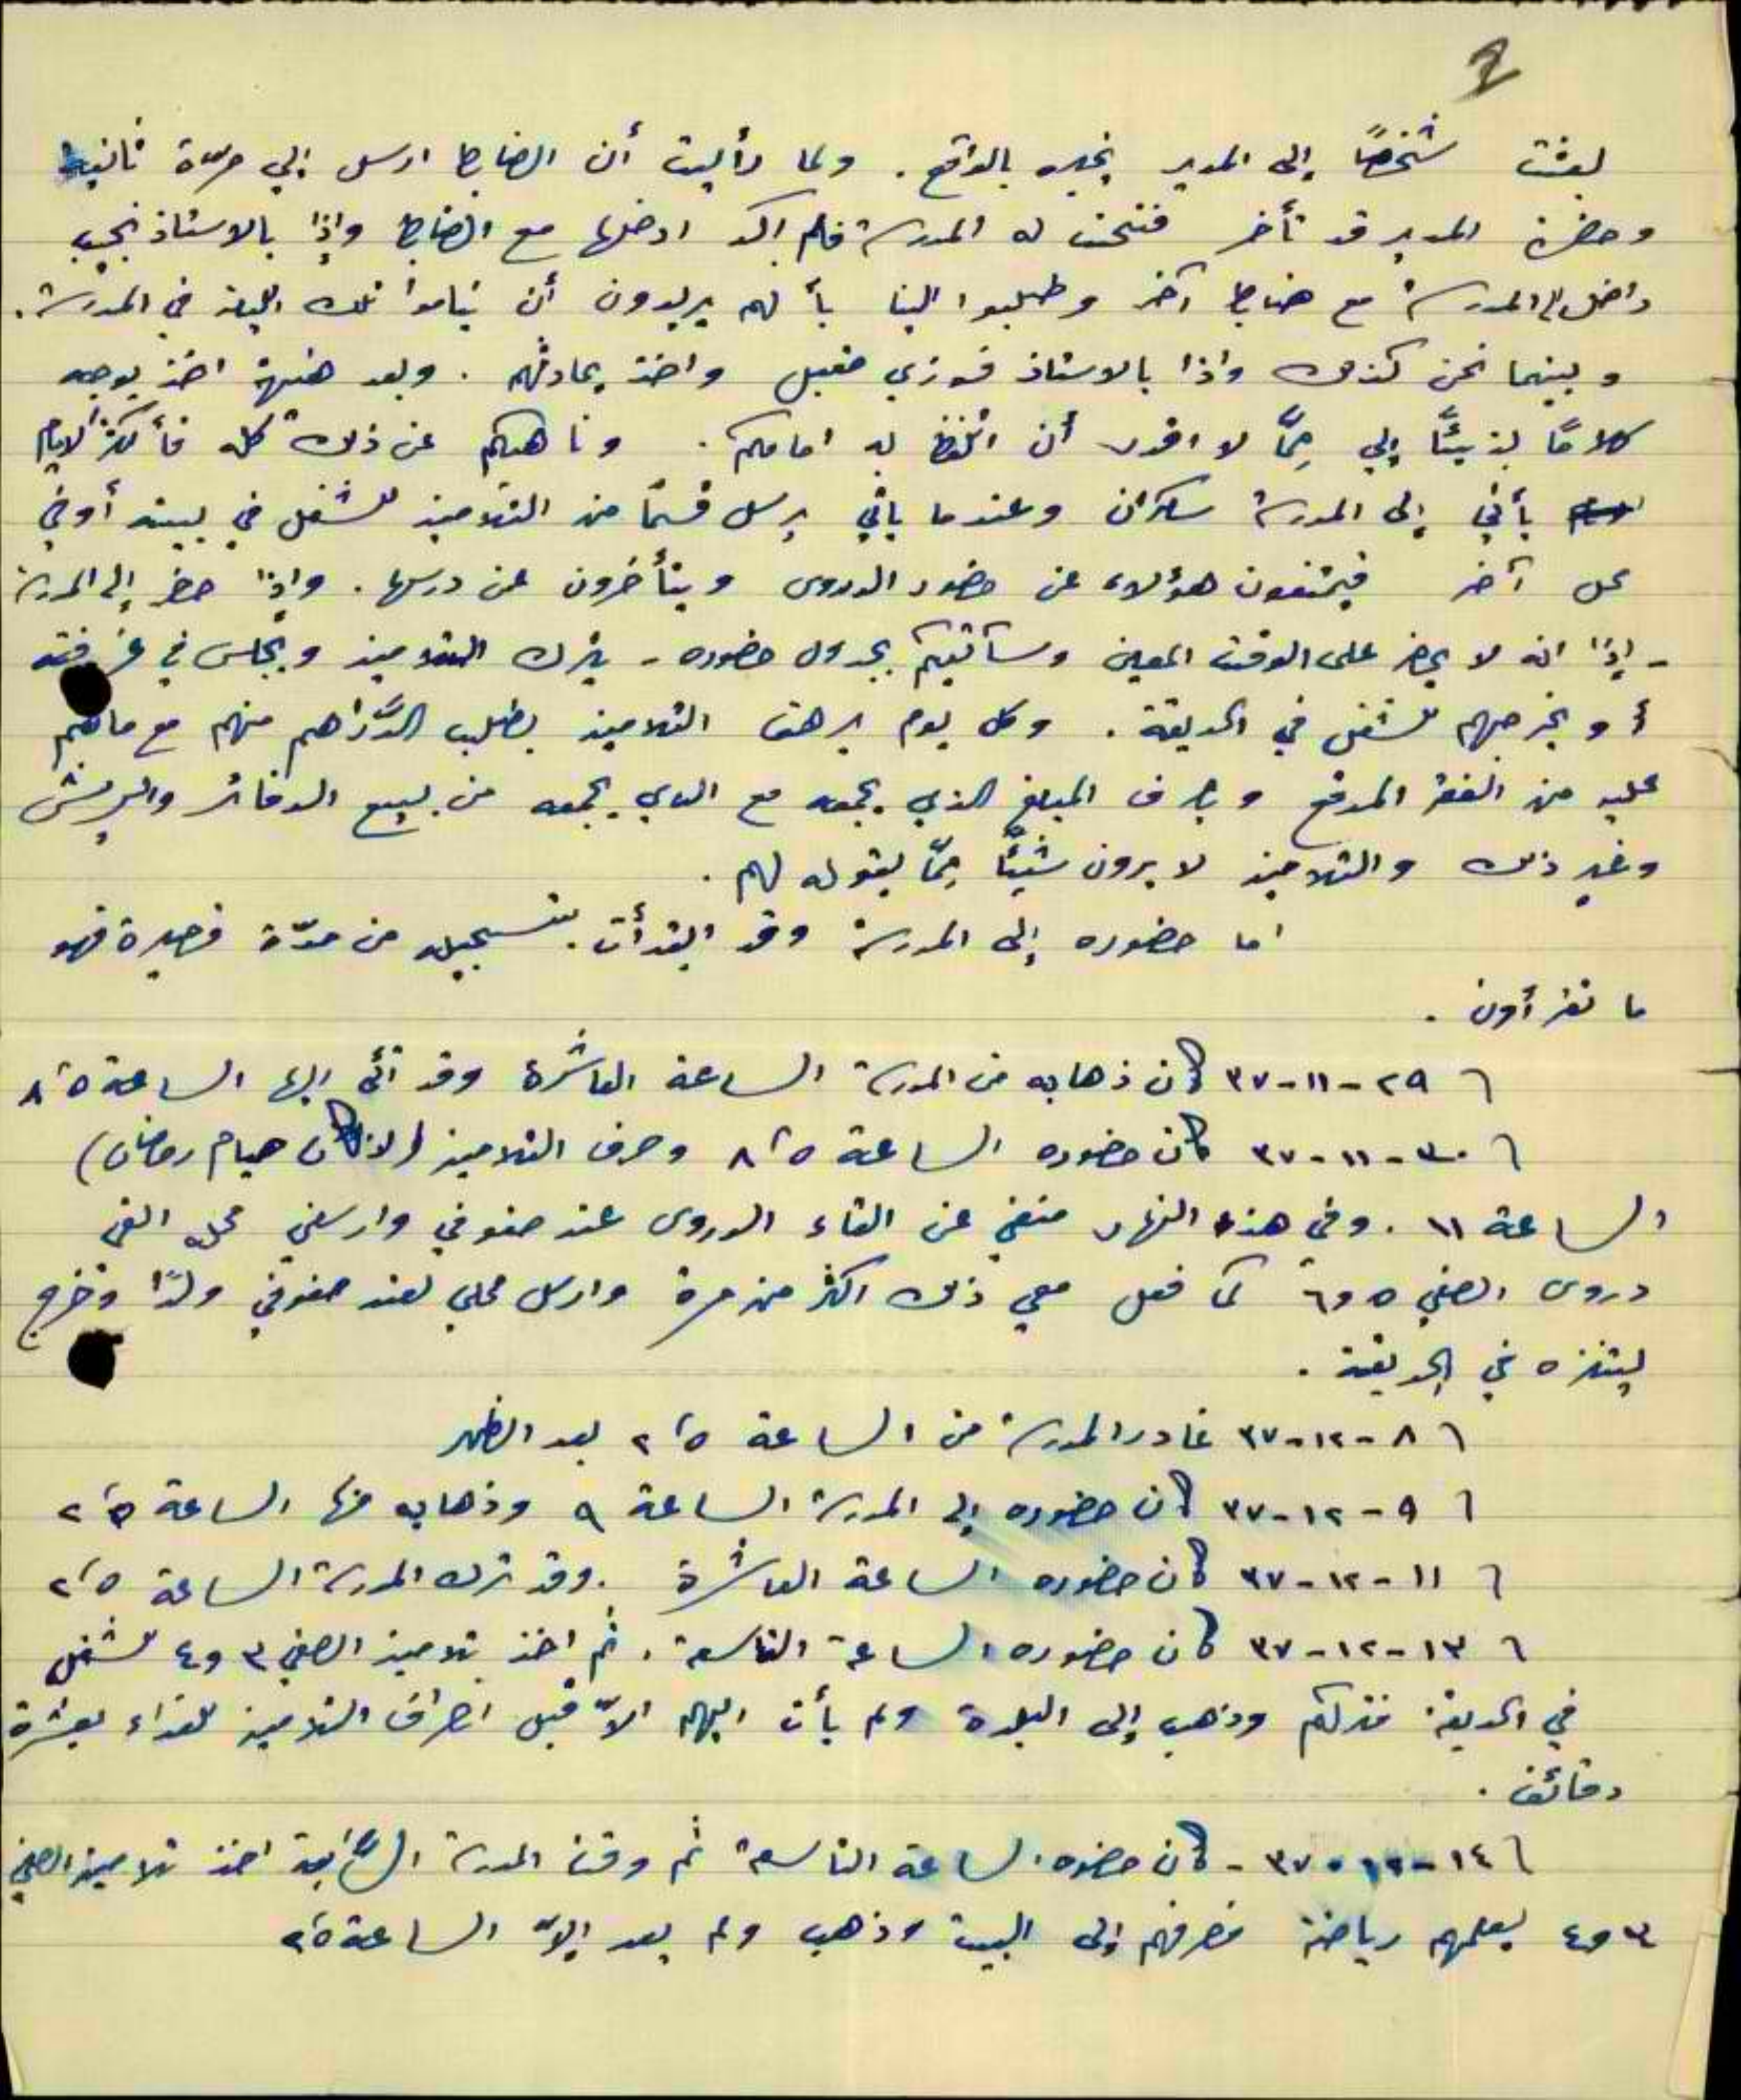 2
بعثت شخصًا إلى المدير يخبره بالواقع. ولما رأيت أن الضابط ارسل إلي مرّة ثانية
وحضرة المدير قد تأخر فتحت له المدرسة فلم اكد ادخلها مع الضابط وإذا بالاستاذ نجيب
داخل المدرسة مع ضابط آخر وطلبوا الينا بأنهم يريدون أن يناموا تلك الليلة في المدرسة.
وبينما نحن كذلك واذا بالاستاذ فوزي مقبل واخذ يحادثهم. وبعد هنيهة اخذ يوجه
كلامًا بذيئًا إلي ممّا لا اقدر أن اتلفظ به امامكم. وناهيكم عن ذلك كله فأكثر الايام
يأتي إلى المدرسة سكران وعندما يأتي يرسل قسمًا من التلاميذ للشغل في بيته أو في
محل آخر فيمتنعون هؤلاء عن حضور الدروس ويتأخرون عن درسها. وإذا حضر إلى المدرسة
- إذا انه لا يحضر على الوقت المعين وسآتيكم بجدول حضوره - يترك التلاميذ ويجلس في غرفته
أو يخرجهم للشغل في الحديقة. وكل يوم يرهق التلاميذ بطلب الدَّراهم منهم مع ماهم
عليه من الفقر المدقع ويصرف المبلغ الذي يجمعه مع الذي يجمعه من بيع الدفاتر والبريش
وغير ذلك والتلاميذ لا يرون شيئًا ممّا يقوله لهم.
اما حضوره إلى المدرسة وقد ابتدأت بتسجيله من مدّة قصيرة فهو
ما تقرأون.
٦ ٢٩-١١-٣٧ كان ذهابه من المدرسة الساعة العاشرة وقد أتى اليها الساعة ٨٫٥
٦ ٣٠-١١-٣٧ كان حضوره الساعة ٨٫٥ وصرف التلاميذ (لانه كان صيام رمضان)
الساعة ١١. وفي هذه النهار منعني عن القاء الدروس عند صفوفي وارسلني محله القي
دروس الصفي ٥ و٦ كما فعل معي ذلك اكثر من مرة وارسل محلي لعند صفوفي ولدًا وخرج
ليتنزه في الحديقة.
٦ ٨-١٢-٣٧ غادر المدرسة من الساعة ٢٫٥ بعد الظهر
٦ ٩-١٢-٣٧ كان حضوره إلى المدرسة الساعة ٩ وذهابه منها الساعة ٢٫٥
٦ ١١-١٢-٣٧ كان حضوره الساعة العاشرة. وقد ترك المدرسة الساعة ٢٫٥
٦ ١٣-١٢-٣٧ كان حضوره الساعة التاسعة. ثم اخذ تلاميذ الصفي ٣ و٤ للشغل
في الحديقة فتركهم وذهب إلى البلدة ولم يأت اليهم الاّ قبل انصراف التلاميذ للغداء بعشرة
دقائق.
٦ ١٤-١٢-٣٧ - كان حضوره الساعة التاسعة ثم وقت المدرسة اخذ تلاميذ الصفي
٣ و٤ ليعلمهم رياضة فصرفهم إلى البيت وذهب ولم يعد إلاّ الساعة ٢٫٥